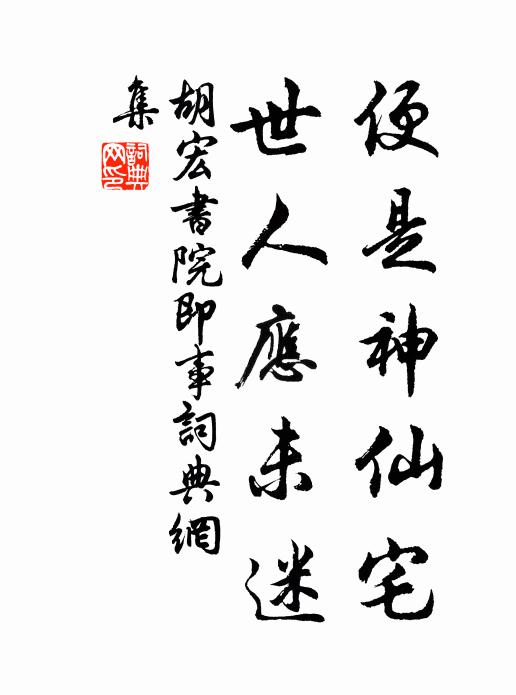 便是神仙宅
世人應未迷
胡宏書院即事詞典網
集
詞典網印